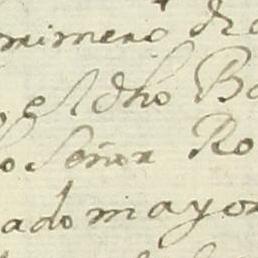 mimeno de
el dho Ba
o Señor Ro
ado mayor